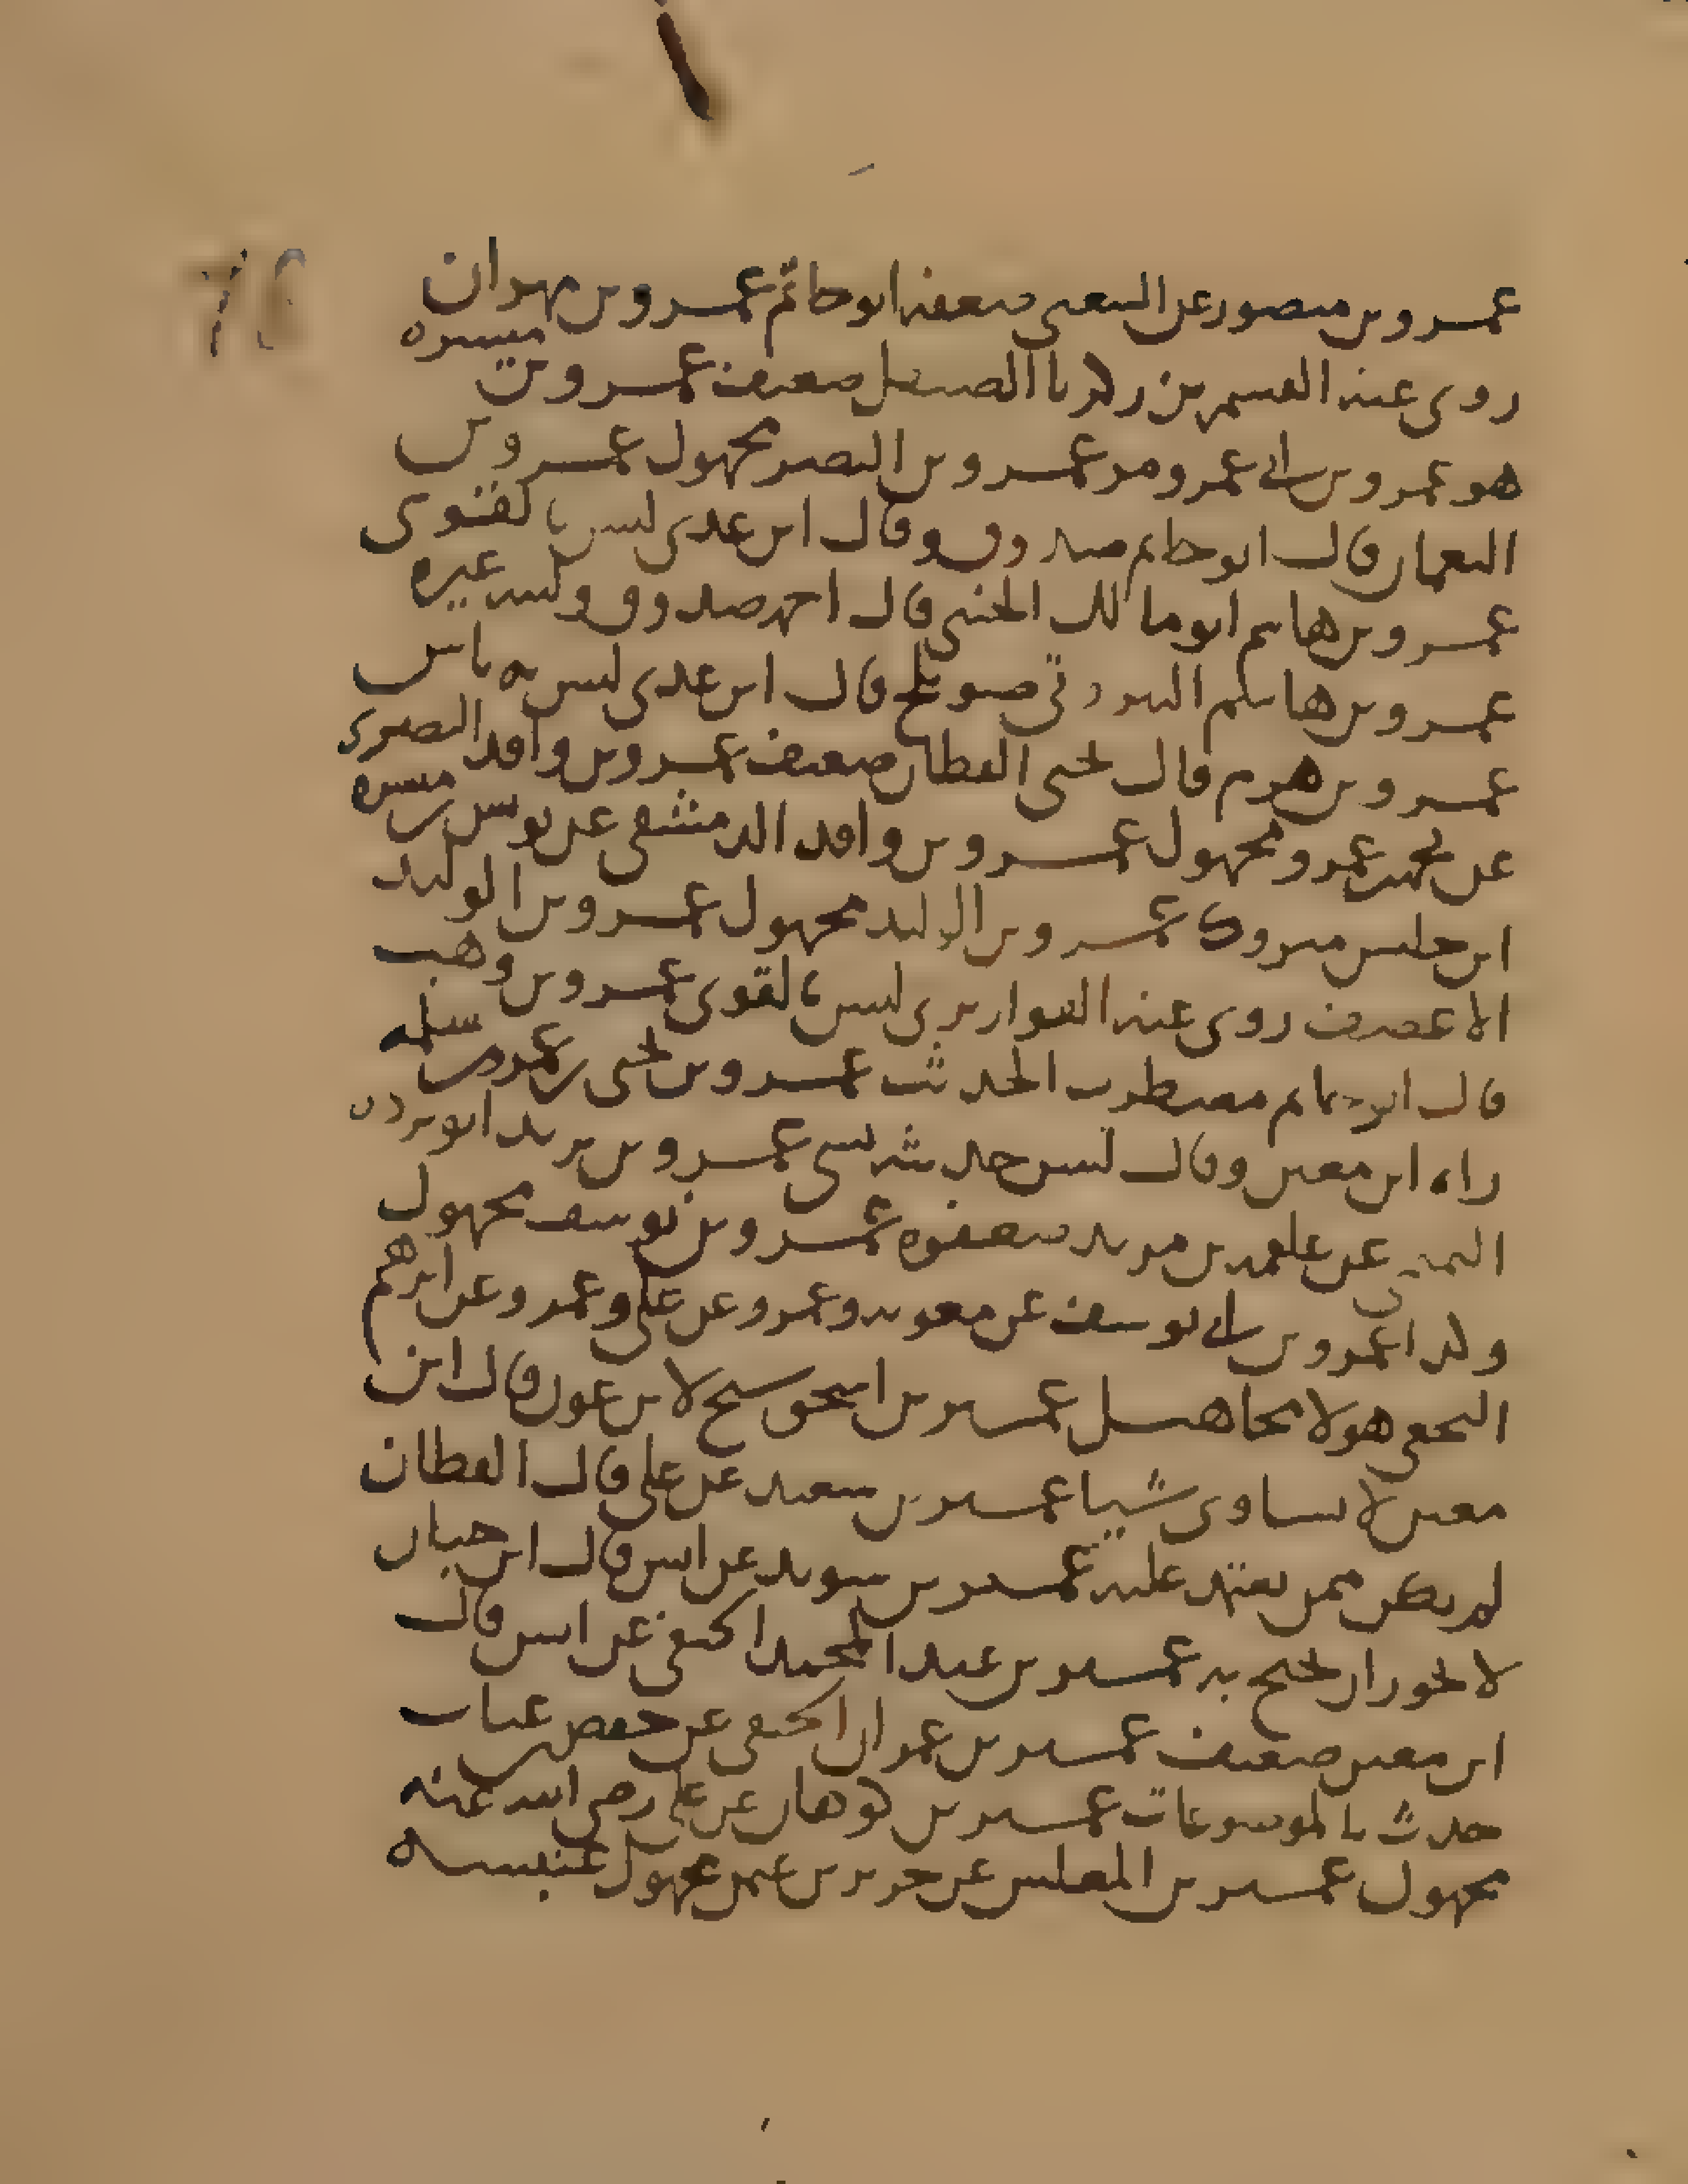 عمرو بن منصور عن الشعبي ضعفه ابو حاتم عمرو بن مهران
روى عنه القسم بن زكريا الصيقل ضعيف عمرو بن ميسره
هو عمرو بن ابي عمرو مر عمرو بن النضر مجهول عمرو بن
النعمان قال ابو حاتم صدوق وقال ابن عدي ليس بالقوي
عمرو بن هاشم ابو مالك الجنبي قال احمد صدوق ولينه غيره
عمرو بن هاشم البيروتي صويلح قال ابن عدي ليس به باس
عمرو بن هرم قال يحيى القطان ضعيف عمرو بن واقد البصري
عن عمرو مجهول عمرو بن واقد الدمشقي عن يونس بن ميسره
ابن حلبس متروك عمرو بن الوليد مجهول عمرو بن الوليد
الاغضف روى عنه القواريري ليس بالقوي عمرو بن وهب
قال ابو حاتم مضطرب الحديث عمرو بن يحيى بن عمرو بن سلمه
راه ابن معين وقال ليس حديثه بشي عمرو بن يزيد ابو برده
التميمي عن علقمه بن مرثد ضعفوه عمرو بن يوسف مجهول
وكذا عمرو بن ابي يوسف عن معويه وعمرو عن علي وعمرو عن ابرهيم
النخعي هولا مجاهيل عمير بن اسحق شيخ لابن عون قال ابن
معين لا يساوي شيا عمير بن سعيد عن علي قال القطان
لم يكن ممن يعتمد عليه عمير بن سويد عن انس قال ابن حبان
لا يجوز ان يحتج به عمير بن عبد المجيد الحنفي عن انس قال
ابن معين ضعيف عمير بن عمران الحنفي عن حفص بن غياث
حدث بالموضوعات عمير بن قوهان عن علي رضي الله عنه
مجهول عمير بن المغلس عن حريز بن عثمن مجهول عنبسه